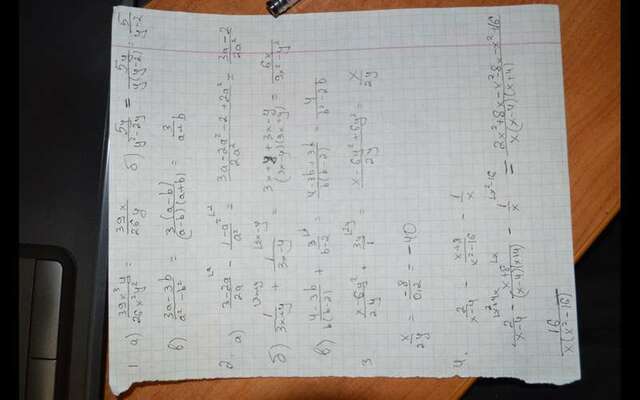 1 а) 39x³y / 26x²y² = 39x / 26y б) 5y / y²-2y = 5y / y(y-2) = 5 / y-2
в) 3a-3b / a²-b² = 3(a-b) / (a-b)(a+b) = 3 / a+b
2. а) 3-2a / 2a - 1-a² / a² = 3a-2a²-2+2a² / 2a² = 3a-2 / 2a²
б) 1 / 3x+y + 1 / 3x-y = 3x-y+3x-y / (3x-y)(3x+y) = 6x / 9x²-y²
в) 4-3b / b(b-2) + 3 / b-2 = 4-3b+3b / b(b-2) = 4 / b²-2b
3 x-6y² / 2y + 3y / 1 = x-6y²+6y² / 2y = x / 2y
x / 2y = -8 / 0,2 = -40
4. 2 / x-4 - x+8 / x²-16 - 1 / x
2 / x-4 - x+8 / (x-4)(x+4) - 1 / x = 2x²+8x-x²-8x-x²+16 / x(x-4)(x+4)
16 / x(x²-16)